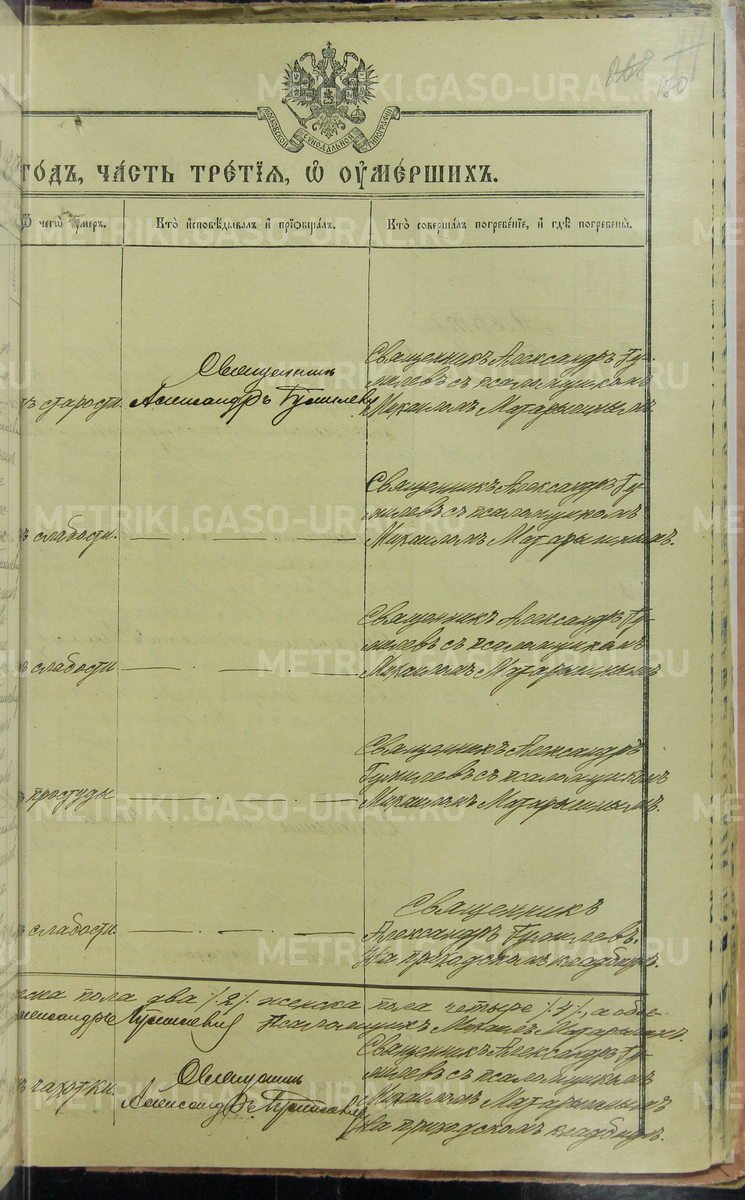 180
МОСКОВСКОЙ СѴНОДАЛЬНОЙ ТИПОГРАФІИ
годъ, часть третїѧ, ѡ оумершихъ.
Ѿ чегѡ оумеръ.
Кто исповѣдывалъ и прїобщалъ.
Кто совершалъ погребенїе, и гдѣ погребены.
старости.
Священникъ
Александръ Гумилевъ
Священникъ Александръ Гу-
милевъ съ псаломщикомъ
Михаиломъ Матарыгинымъ.
слабости.
Священникъ Александръ Гу-
милевъ съ псаломщикомъ
Михаиломъ Матарыгинымъ.
слабости
Священникъ Александръ Гу-
милевъ съ псаломщикомъ
Михаиломъ Матарыгинымъ
простуды
Священникъ Александръ
Гумилевъ съ псаломщикомъ
Михаиломъ Матарыгинымъ.
слабости.
Священникъ
Александръ Гумилевъ.
На приходскомъ кладбищѣ.
пола два /2/ женска пола четыре /4/, а обое-
Александръ Гумилевъ Псаломщикъ Михаилъ Матарыгинъ.
чахотки.
Священникъ
Александръ Гумилевъ
Священникъ Александръ Гу-
милевъ съ псаломщикомъ
Михаиломъ Матарыгинымъ
На приходскомъ кладбищѣ.
METRIKI.GASO-URAL.RU